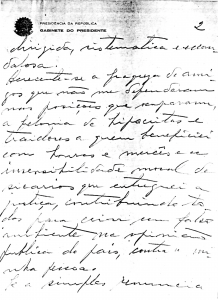 PRESIDÊNCIA DA REPÚBLICA
GABINETE DO PRESIDENTE
2
dirigida, sistematica e escan
dalosa.
Acrescente-se a fraqueza de ami
gos que não me defenderam
nas posições que ocuparam,
a felonia de hipocritas e
traidores a quem beneficiei
com honras e mercês e a
insensibilidade moral de
sicarios que entreguei à
justiça, contribuindo to
dos para criar um falso
ambiente na opinião
publica do país, contra a mi
nha pessoa.
Se a simples renuncia